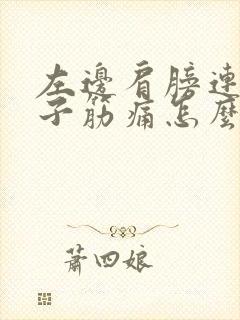 左邊肩膀連
子筋痛怎麼
蕭四娘